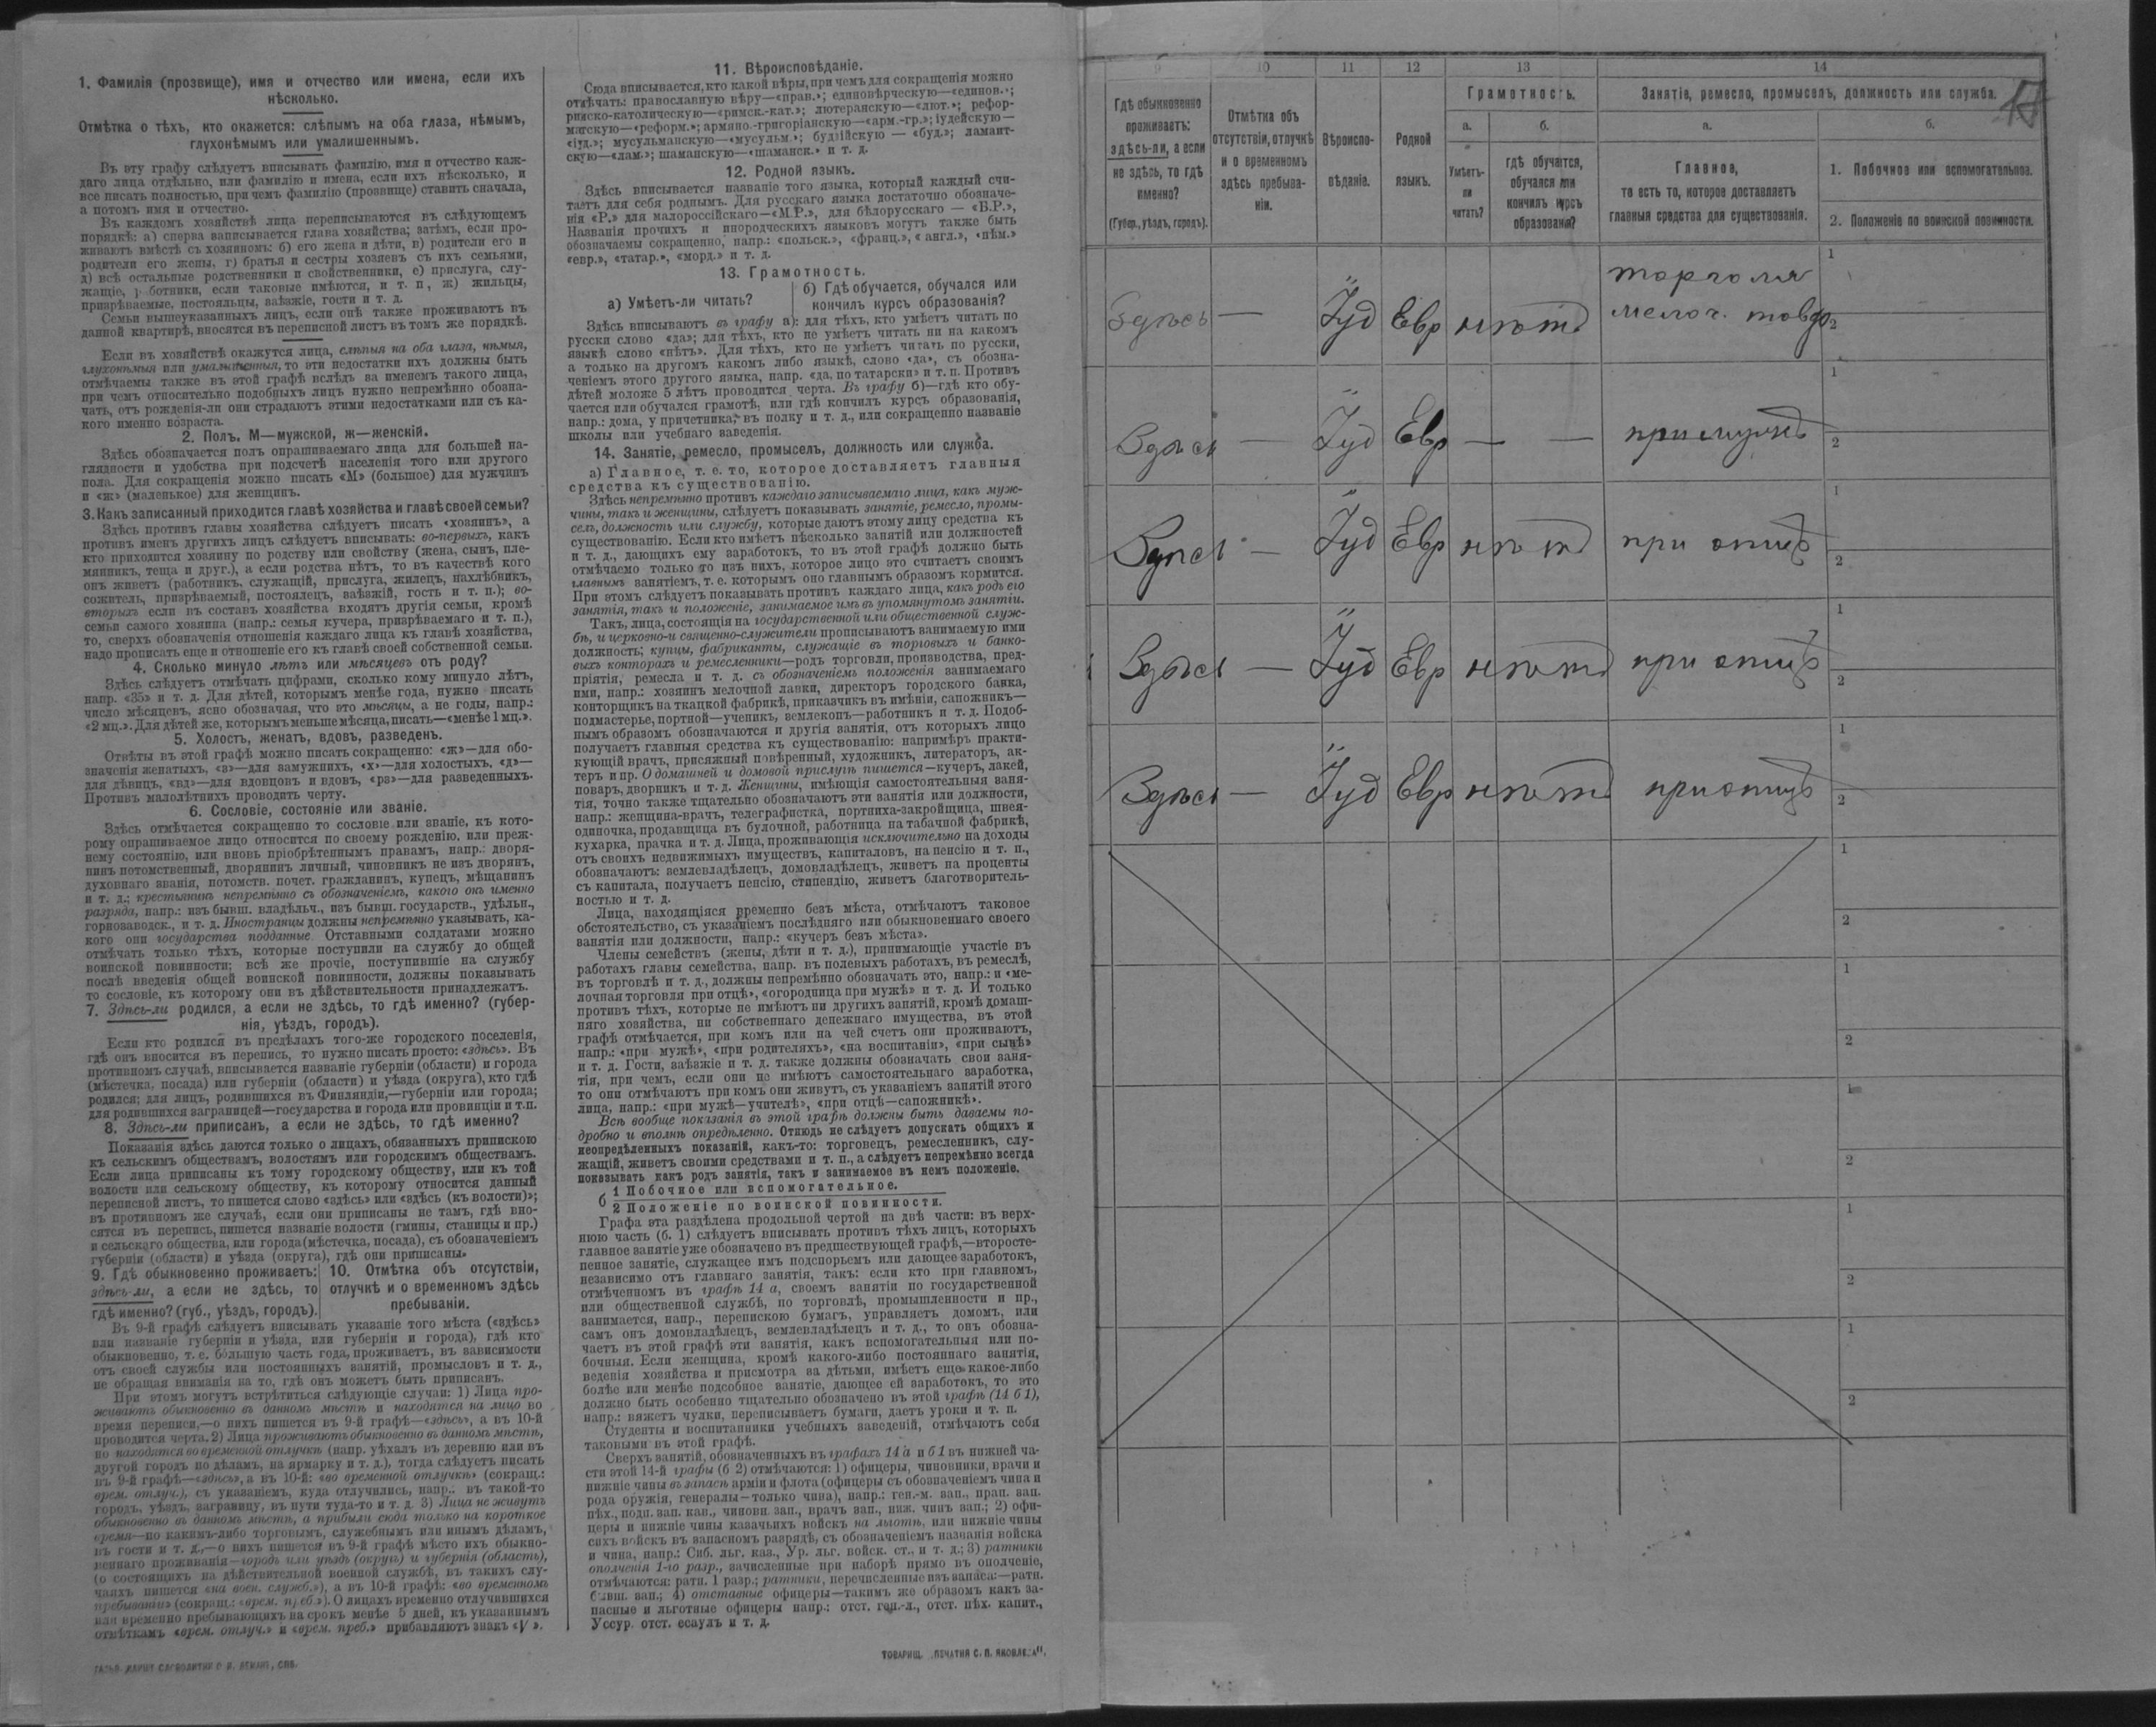 1. Фамилія (прозвище), имя и отчество или имена, если ихъ
нѣсколько.
Отмѣтка о тѣхъ, кто окажется: слѣпымъ на оба глаза, нѣмымъ,
глухонѣмымъ или умалишеннымъ.
Въ эту графу слѣдуетъ вписывать фамилію, имя и отчество каж-
даго лица отдѣльно, или фамилію и имена, если ихъ нѣсколько, и
все писать полностью, при чемъ фамилію (прозвище) ставить сначала,
а потомъ имя и отчество.
Въ каждомъ хозяйствѣ лица переписываются въ слѣдующемъ
порядкѣ: а) сперва записывается глава хозяйства; затѣмъ, если про-
живаютъ вмѣстѣ съ хозяиномъ: б) его жена и дѣти, в) родители его и
родители его жены, г) братья и сестры хозяевъ съ ихъ семьями,
д) всѣ остальные родственники и свойственники, е) прислуга, слу-
жащіе, работники, если таковые имѣются, и т. п., ж) жильцы,
призрѣваемые, постояльцы, заѣзжіе, гости и т. д.
Семьи вышеуказанныхъ лицъ, если онѣ также проживаютъ въ
данной квартирѣ, вносятся въ переписной листъ въ томъ же порядкѣ.
Если въ хозяйствѣ окажутся лица, слѣпыя на оба глаза, нѣмыя,
глухонѣмыя или умалишенныя, то эти недостатки ихъ должны быть
отмѣчаемы также въ этой графѣ вслѣдъ за именемъ такого лица,
при чемъ относительно подобныхъ лицъ нужно непремѣнно обозна-
чать, отъ рожденія-ли они страдаютъ этими недостатками или съ ка-
кого именно возраста.
2. Полъ. М—мужской, ж—женскій.
Здѣсь обозначается полъ опрашиваемаго лица для большей на-
глядности и удобства при подсчетѣ населенія того или другого
пола. Для сокращенія можно писать «М» (большое) для мужчинъ
и «ж» (маленькое) для женщинъ.
3. Какъ записанный приходится главѣ хозяйства и главѣ своей семьи?
Здѣсь противъ главы хозяйства слѣдуетъ писать «хозяинъ», а
противъ именъ другихъ лицъ слѣдуетъ вписывать: во-первыхъ, какъ
кто приходится хозяину по родству или свойству (жена, сынъ, пле-
мянникъ, теща и друг.), а если родства нѣтъ, то въ качествѣ кого
онъ живетъ (работникъ, служащій, прислуга, жилецъ, нахлѣбникъ,
сожитель, призрѣваемый, постоялецъ, заѣзжій, гость и т. п.); во-
вторыхъ если въ составъ хозяйства входятъ другія семьи, кромѣ
семьи самого хозяина (напр.: семья кучера, призрѣваемаго и т. п.),
то, сверхъ обозначенія отношенія каждаго лица къ главѣ хозяйства,
надо прописать еще и отношеніе его къ главѣ своей собственной семьи.
4. Сколько минуло лѣтъ или мѣсяцевъ отъ роду?
Здѣсь слѣдуетъ отмѣчать цифрами, сколько кому минуло лѣтъ,
напр. «35» и т. д. Для дѣтей, которымъ менѣе года, нужно писать
число мѣсяцевъ, ясно обозначая, что это мѣсяцы, а не годы, напр.:
«2 мц.». Для дѣтей же, которымъ меньше мѣсяца, писать—«менѣе 1 мц.».
5. Холостъ, женатъ, вдовъ, разведенъ.
Отвѣты въ этой графѣ можно писать сокращенно: «ж»—для обо-
значенія женатыхъ, «з»—для замужнихъ, «х»—для холостыхъ, «д»—
для дѣвицъ, «вд»—для вдовцовъ и вдовъ, «рз»—для разведенныхъ.
Противъ малолѣтнихъ проводить черту.
6. Сословіе, состояніе или званіе.
Здѣсь отмѣчается сокращенно то сословіе или званіе, къ кото-
рому опрашиваемое лицо относится по своему рожденію, или преж-
нему состоянію, или вновь пріобрѣтеннымъ правамъ, напр.: дворя-
нинъ потомственный, дворянинъ личный, чиновникъ не изъ дворянъ,
духовнаго званія, потомств. почет. гражданинъ, купецъ, мѣщанинъ
и т. д.; крестьянинъ непремѣнно съ обозначеніемъ, какого онъ именно
разряда, напр.: изъ бывш. владѣльч., изъ бывш. государств., удѣльн.,
горнозаводск., и т. д. Иностранцы должны непремѣнно указывать, ка-
кого они государства подданные. Отставными солдатами можно
отмѣчать только тѣхъ, которые поступили на службу до общей
воинской повинности; всѣ же прочіе, поступившіе на службу
послѣ введенія общей воинской повинности, должны показывать
то сословіе, къ которому они въ дѣйствительности принадлежатъ.
7. Здѣсь-ли родился, а если не здѣсь, то гдѣ именно? (губер-
нія, уѣздъ, городъ).
Если кто родился въ предѣлахъ того-же городского поселенія,
гдѣ онъ вносится въ перепись, то нужно писать просто: «здѣсь». Въ
противномъ случаѣ, вписывается названіе губерніи (области) и города
(мѣстечка, посада) или губерніи (области) и уѣзда (округа), кто гдѣ
родился; для лицъ, родившихся въ Финляндіи,—губерніи или города;
для родившихся заграницей—государства и города или провинціи и т.п.
8. Здѣсь-ли приписанъ, а если не здѣсь, то гдѣ именно?
Показанія здѣсь даются только о лицахъ, обязанныхъ припискою
къ сельскимъ обществамъ, волостямъ или городскимъ обществамъ.
Если лица приписаны къ тому городскому обществу, или къ той
волости или сельскому обществу, къ которому относится данный
переписной листъ, то пишется слово «здѣсь» или «здѣсь (къ волости)»;
въ противномъ же случаѣ, если они приписаны не тамъ, гдѣ вно-
сятся въ перепись, пишется названіе волости (гмины, станицы и пр.)
и сельскаго общества, или города (мѣстечка, посада), съ обозначеніемъ
губерніи (области) и уѣзда (округа), гдѣ они приписаны.
9. Гдѣ обыкновенно проживаетъ:
здѣсь-ли, а если не здѣсь, то
гдѣ именно? (губ., уѣздъ, городъ).
10. Отмѣтка объ отсутствіи,
отлучкѣ и о временномъ здѣсь
пребываніи.
Въ 9-й графѣ слѣдуетъ вписывать указаніе того мѣста («здѣсь»
или названіе губерніи и уѣзда, или губерніи и города), гдѣ кто
обыкновенно, т. е. большую часть года, проживаетъ, въ зависимости
отъ своей службы или постоянныхъ занятій, промысловъ и т. д.,
не обращая вниманія на то, гдѣ онъ можетъ быть приписанъ.
При этомъ могутъ встрѣтиться слѣдующіе случаи: 1) Лица про-
живаютъ обыкновенно въ данномъ мѣстѣ и находятся на лицо во
время переписи,—о нихъ пишется въ 9-й графѣ—«здѣсь», а въ 10-й
проводится черта. 2) Лица проживаютъ обыкновенно въ данномъ мѣстѣ,
но находятся во временной отлучкѣ (напр. уѣхалъ въ деревню или въ
другой городъ по дѣламъ, на ярмарку и т. д.), тогда слѣдуетъ писать
въ 9-й графѣ—«здѣсь», а въ 10-й: «во временной отлучкѣ» (сокращ.:
врем. отлуч.), съ указаніемъ, куда отлучились, напр.: въ такой-то
городъ, уѣздъ, заграницу, въ пути туда-то и т. д. 3) Лица не живутъ
обыкновенно въ данномъ мѣстѣ, а прибыли сюда только на короткое
время—по какимъ-либо торговымъ, служебнымъ или инымъ дѣламъ,
въ гости и т. д.,—о нихъ пишется въ 9-й графѣ мѣсто ихъ обыкно-
веннаго проживанія—городъ или уѣздъ (округъ) и губернія (область),
(о состоящихъ на дѣйствительной военной службѣ, въ такихъ слу-
чаяхъ пишется «на воен. служб.»), а въ 10-й графѣ: «во временномъ
пребываніи» (сокращ.: «врем. преб.»). О лицахъ временно отлучившихся
или временно пребывающихъ на срокъ менѣе 5 дней, къ указаннымъ
отмѣткамъ «врем. отлуч.» и «врем. преб.» прибавляютъ знакъ «V».
11. Вѣроисповѣданіе.
Сюда вписывается, кто какой вѣры, при чемъ для сокращенія можно
отмѣчать: православную вѣру—«прав.»; единовѣрческую—«единов.»;
римско-католическую—«римск.-кат.»; лютеранскую—«лют.»; рефор-
матскую—«реформ.»; армяно.-григоріанскую—«арм.-гр.»; іудейскую—
«іуд.»; мусульманскую—«мусульм.»; буддійскую — «буд.»; ламаит-
скую—«лам.»; шаманскую—«шаманск.» и т. д.
12. Родной языкъ.
Здѣсь вписывается названіе того языка, который каждый счи-
таетъ для себя роднымъ. Для русскаго языка достаточно обозначе-
нія «Р.» для малороссійскаго—«М.Р.», для бѣлорусскаго — «Б.Р.»,
Названія прочихъ и инородческихъ языковъ могутъ также быть
обозначаемы сокращенно, напр.: «польск.», «франц.», «англ.», «нѣм.»
«евр.», «татар.», «морд.» и т. д.
13. Грамотность.
а) Умѣетъ-ли читать?
б) Гдѣ обучается, обучался или
кончилъ курсъ образованія?
Здѣсь вписываютъ въ графу а): для тѣхъ, кто умѣетъ читать по
русски слово «да»; для тѣхъ, кто не умѣетъ читать ни на какомъ
языкѣ слово «нѣтъ». Для тѣхъ, кто не умѣетъ читать по русски,
а только на другомъ какомъ либо языкѣ, слово «да», съ обозна-
ченіемъ этого другого языка, напр. «да, по татарски» и т. п. Противъ
дѣтей моложе 5 лѣтъ проводится черта. Въ графу б)—гдѣ кто обу-
чается или обучался грамотѣ, или гдѣ кончилъ курсъ образованія,
напр.: дома, у причетника, въ полку и т. д., или сокращенно названіе
школы или учебнаго заведенія.
14. Занятіе, ремесло, промыселъ, должность или служба.
а) Главное, т. е. то, которое доставляетъ главныя
средства къ существованію.
Здѣсь непремѣнно противъ каждаго записываемаго лица, какъ муж-
чины, такъ и женщины, слѣдуетъ показывать занятіе, ремесло, промы-
селъ, должность или службу, которые даютъ этому лицу средства къ
существованію. Если кто имѣетъ нѣсколько занятій или должностей
и т. д., дающихъ ему заработокъ, то въ этой графѣ должно быть
отмѣчаемо только то изъ нихъ, которое лицо это считаетъ своимъ
главнымъ занятіемъ, т. е. которымъ оно главнымъ образомъ кормится.
При этомъ слѣдуетъ показывать противъ каждаго лица, какъ родъ его
занятія, такъ и положеніе, занимаемое имъ въ упомянутомъ занятіи.
Такъ, лица, состоящія на государственной или общественной служ-
бѣ, и церковно-и священно-служители прописываютъ занимаемую ими
должность; купцы, фабриканты, служащіе въ торговыхъ и банко-
выхъ конторахъ и ремесленники—родъ торговли, производства, пред-
пріятія, ремесла и т. д. съ обозначеніемъ положенія занимаемаго
ими, напр.: хозяинъ мелочной лавки, директоръ городского банка,
конторщикъ на ткацкой фабрикѣ, приказчикъ въ имѣніи, сапожникъ—
подмастерье, портной—ученикъ, землекопъ—работникъ и т. д. Подоб-
нымъ образомъ обозначаются и другія занятія, отъ которыхъ лицо
получаетъ главныя средства къ существованію: напримѣръ практи-
кующій врачъ, присяжный повѣренный, художникъ, литераторъ, ак-
теръ и пр. О домашней и домовой прислугѣ пишется—кучеръ, лакей,
поваръ, дворникъ и т. д. Женщины, имѣющія самостоятельныя заня-
тія, точно также тщательно обозначаютъ эти занятія или должности,
напр.: женщина-врачъ, телеграфистка, портниха-закройщица, швея-
одиночка, продавщица въ булочной, работница на табачной фабрикѣ,
кухарка, прачка и т. д. Лица, проживающія исключительно на доходы
отъ своихъ недвижимыхъ имуществъ, капиталовъ, на пенсію и т. п.,
обозначаютъ: землевладѣлецъ, домовладѣлецъ, живетъ на проценты
съ капитала, получаетъ пенсію, стипендію, живетъ благотворитель-
ностью и т. д.
Лица, находящіяся временно безъ мѣста, отмѣчаютъ таковое
обстоятельство, съ указаніемъ послѣдняго или обыкновеннаго своего
занятія или должности, напр.: «кучеръ безъ мѣста».
Члены семействъ (жены, дѣти и т. д.), принимающіе участіе въ
работахъ главы семейства, напр. въ полевыхъ работахъ, въ ремеслѣ,
въ торговлѣ и т. д., должны непремѣнно обозначать это, напр.: и «ме-
лочная торговля при отцѣ», «огородница при мужѣ» и т. д. И только
противъ тѣхъ, которые не имѣютъ ни другихъ занятій, кромѣ домаш-
няго хозяйства, ни собственнаго денежнаго имущества, въ этой
графѣ отмѣчается, при комъ или на чей счетъ они проживаютъ,
напр.: «при мужѣ», «при родителяхъ», «на воспитаніи», «при сынѣ»
и т. д. Гости, заѣзжіе и т. д. также должны обозначать свои заня-
тія, при чемъ, если они не имѣютъ самостоятельнаго заработка,
то они отмѣчаютъ при комъ они живутъ, съ указаніемъ занятій этого
лица, напр.: «при мужѣ—учителѣ», «при отцѣ—сапожникѣ».
Всѣ вообще показанія въ этой графѣ должны быть даваемы по-
дробно и вполнѣ опредѣленно. Отнюдь не слѣдуетъ допускать общихъ и
неопредѣленныхъ показаній, какъ-то: торговецъ, ремесленникъ, слу-
жащій, живетъ своими средствами и т. п., а слѣдуетъ непремѣнно всегда
показывать какъ родъ занятія, такъ и занимаемое въ немъ положеніе.
б 1 Побочное или вспомогательное.
2 Положеніе по воинской повинности.
Графа эта раздѣлена продольной чертой на двѣ части: въ верх-
нюю часть (б. 1) слѣдуетъ вписывать противъ тѣхъ лицъ, которыхъ
главное занятіе уже обозначено въ предшествующей графѣ,—второсте-
пенное занятіе, служащее имъ подспорьемъ или дающее заработокъ,
независимо отъ главнаго занятія, такъ: если кто при главномъ,
отмѣченномъ въ графѣ 14 а, своемъ занятіи по государственной
или общественной службѣ, по торговлѣ, промышленности и пр.,
занимается, напр., перепискою бумагъ, управляетъ домомъ, или
самъ онъ домовладѣлецъ, землевладѣлецъ и т. д., то онъ обозна-
чаетъ въ этой графѣ эти занятія, какъ вспомогательныя или по-
бочныя. Если женщина, кромѣ какого-либо постояннаго занятія,
веденія хозяйства и присмотра за дѣтьми, имѣетъ еще какое-либо
болѣе или менѣе подсобное занятіе, дающее ей заработокъ, то это
должно быть особенно тщательно обозначено въ этой графѣ (14 б 1),
напр.: вяжетъ чулки, переписываетъ бумаги, даетъ уроки и т. п.
Студенты и воспитанники учебныхъ заведеній, отмѣчаютъ себя
таковыми въ этой графѣ.
Сверхъ занятій, обозначенныхъ въ графахъ 14 а и б 1 въ нижней ча-
сти этой 14-й графы (б 2) отмѣчаются: 1) офицеры, чиновники, врачи и
нижніе чины въ запасѣ арміи и флота (офицеры съ обозначеніемъ чина и
рода оружія, генералы—только чина), напр.: ген.-м. зап., прап. зап.
пѣх., подп. зап. кав., чиновн. зап., врачъ зап., ниж. чинъ зап.; 2) офи-
церы и нижніе чины казачьихъ войскъ на льготѣ, или нижніе чины
сихъ войскъ въ запасномъ разрядѣ, съ обозначеніемъ названія войска
и чина, напр.: Сиб. льг. каз., Ур. льг. войск. ст., и т. д.; 3) ратники
ополченія 1-го разр., зачисленные при наборѣ прямо въ ополченіе,
отмѣчаются: ратн. 1 разр.; ратники, перечисленные изъ запаса:—ратн.
бывш. зап.; 4) отставные офицеры—такимъ же образомъ какъ за-
пасные и льготные офицеры напр.: отст. ген.-л., отст. пѣх. капит.,
Уссур. отст. есаулъ и т. д.
ТОВАРИЩ. „ПЕЧАТНЯ С. П. ЯКОВЛЕВА“.
9 10 11 12 13 14
Гдѣ обыкновенно
проживаетъ:
здѣсь-ли, а если
не здѣсь, то гдѣ
именно?
(Губер., уѣздъ, городъ).
Отмѣтка объ
отсутствіи, отлучкѣ
и о временномъ
здѣсь пребыва-
ніи.
Вѣроиспо-
вѣданіе.
Родной
языкъ.
Грамотность.
а.
Умѣетъ-
ли
читать?
б.
гдѣ обучается,
обучался или
кончилъ курсъ
образованія?
Занятіе, ремесло, промыселъ, должность или служба.
а.
Главное,
то есть то, которое доставляетъ
главныя средства для существованія.
б.
1. Побочное или вспомогательное.
2. Положеніе по воинской повинности.
торговля
Здѣсь — Іуд Евр нѣтъ мелоч. товар 1 2
Здѣсь — Іуд Евр — — при мужѣ 1 2
Здѣсь — Іуд Евр нѣтъ при отцѣ 1 2
Здѣсь — Іуд Евр нѣтъ при отцѣ 1 2
Здѣсь — Іуд Евр нѣтъ при отцѣ 1 2
1
2
1
2
1
2
1
2
1
2